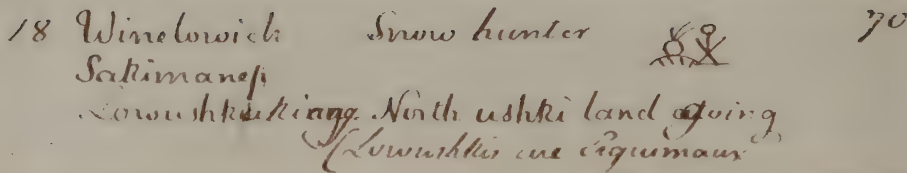 18 Winelowich Snow hunter 70
Sakimanep
Lowushkakiang. North ushki land going
(Lowushkis are Esquimaux